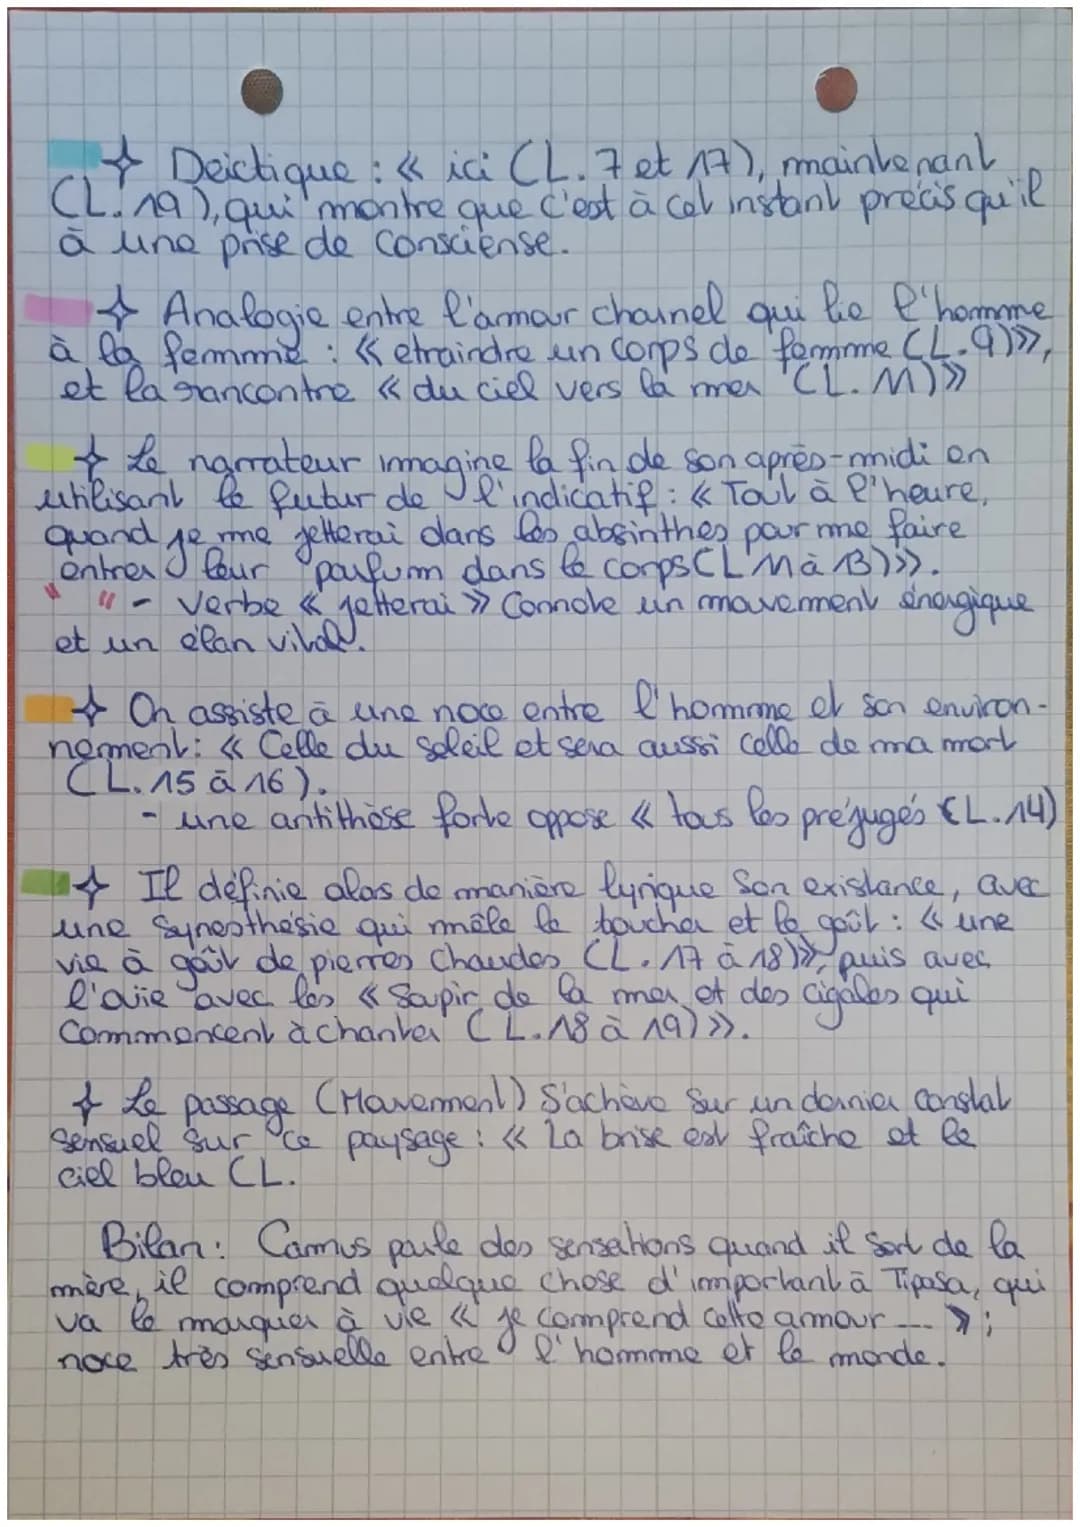 ✧ Deictique : « ici (L. 7 et 17), maintenant
(L. 19), qui montre que c'est à cet instant précis qu'il
à une prise de consciense.
✧ Analogie entre l'amour charnel qui lie l'homme
à la femme : « etraindre un corps de femme (L. 9)»,
et la rencontre « du ciel vers la mer (L. 11)»
✧ Le narrateur immagine la fin de son après-midi en
utilisant le futur de l'indicatif : « Tout à l'heure,
quand je me jetterai dans les absinthes pour me faire
entrer leur parfum dans le corps (L 11 à 13)».
" " - Verbe « jetterai » Connote un mouvement énergique
et un élan vital.
✧ On assiste à une noce entre l'homme et son environ-
nement : « Celle du soleil et sera aussi celle de ma mort
(L. 15 à 16).
- une antithèse forte oppose « tous les préjugés (L. 14)
✧ Il définie alors de manière lyrique son existance, avec
une synesthésie qui mêle le toucher et le goût : « une
vie à goût de pierres chaudes (L. 17 à 18)», puis avec
l'ouïe avec les « Soupir de la mer et des cigales qui
Commencent à chanter (L. 18 à 19)».
✧ Le passage (Mouvement) S'achève sur un dernier constat
sensuel sur ce paysage : « La brise est fraîche et le
ciel bleu (L.
Bilan : Camus parle des sensations quand il sort de la
mère, il comprend quelque chose d'important à Tipasa, qui
va le marquer à vie « je comprend cette amour ... » ;
noce très sensuelle entre l'homme et le monde.